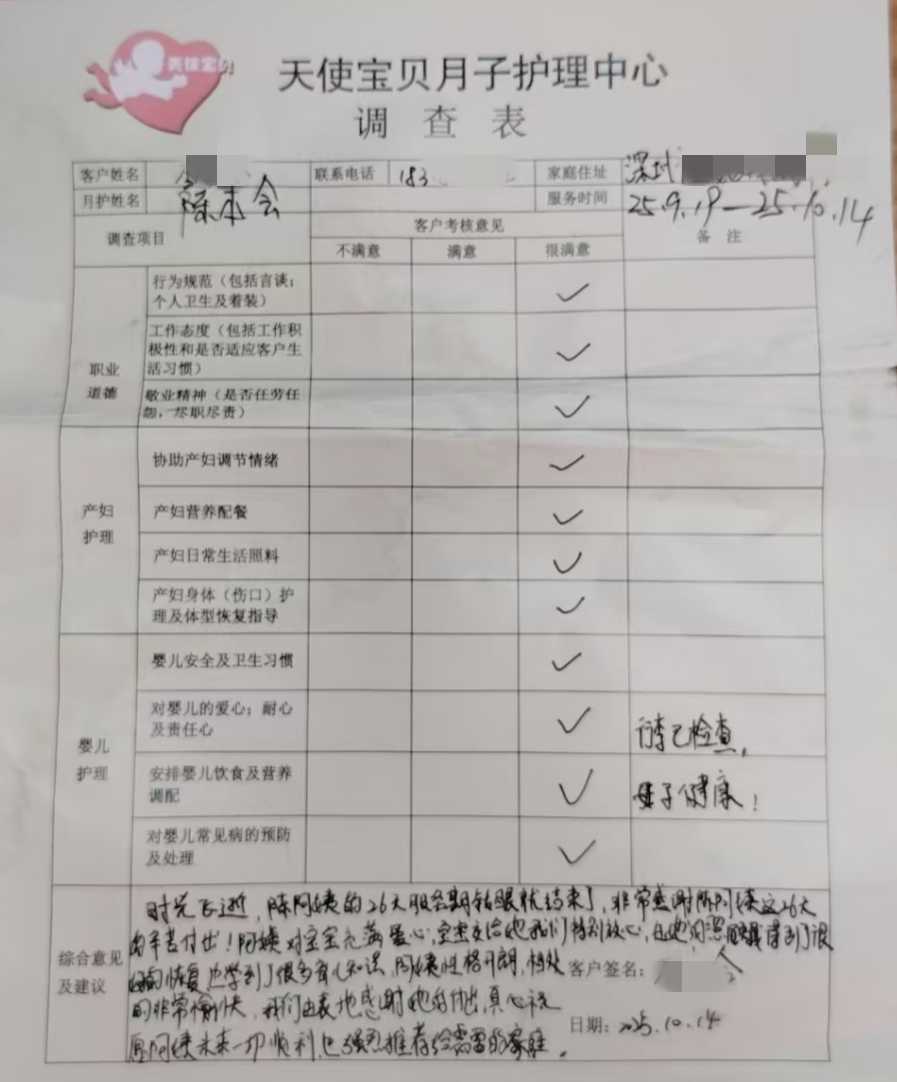 天使宝贝
天使宝贝月子护理中心
调查表
客户姓名 联系电话 183 家庭住址 深圳
月护姓名 陈本会 服务时间 25.9.19—25.10.14
调查项目 客户考核意见 备注
不满意 满意 很满意
职业道德
行为规范（包括言谈；
个人卫生及着装） ✓
工作态度（包括工作积
极性和是否适应客户生
活习惯） ✓
敬业精神（是否任劳任
怨，尽职尽责） ✓
产妇护理
协助产妇调节情绪 ✓
产妇营养配餐 ✓
产妇日常生活照料 ✓
产妇身体（伤口）护
理及体型恢复指导 ✓
婴儿护理
婴儿安全及卫生习惯 ✓
对婴儿的爱心；耐心
及责任心 ✓ 行李已检查，
安排婴儿饮食及营养
调配 ✓ 母子健康！
对婴儿常见病的预防
及处理 ✓
综合意见及建议
时光飞逝，陈阿姨的26天服务期转眼就结束了，非常感谢陈阿姨这26天
的辛苦付出！阿姨对宝宝充满爱心，宝宝交给她我们特别放心，在她的照顾我得到了很
好的恢复也学到了很多育儿知识，阿姨性格开朗，相处
客户签名：
的非常愉快，我们由衷地感谢她的付出，真心祝
日期：2025.10.14
愿阿姨未来一切顺利，也强烈推荐给需要的家庭。